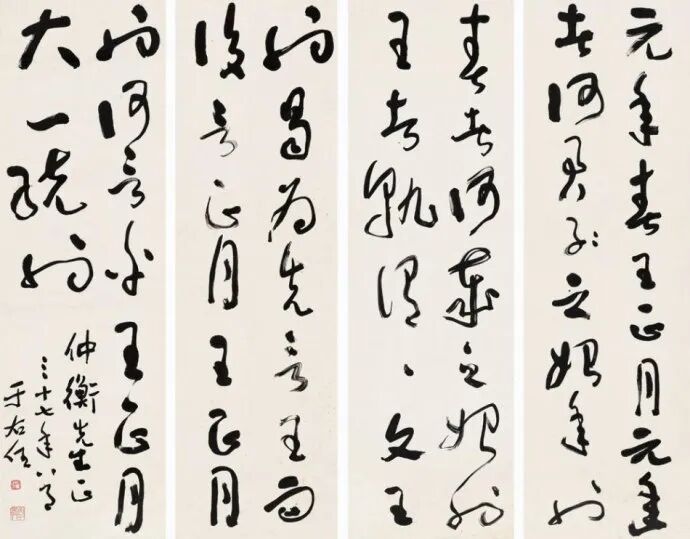 元年春王正月元年
者何君子之始年也
春者何歲之始也
王者孰謂〻文王
也曷為先言王而
後言正月王正月
也何言乎王正月
大一統也
仲衡先生正
三十七年八月
于右任